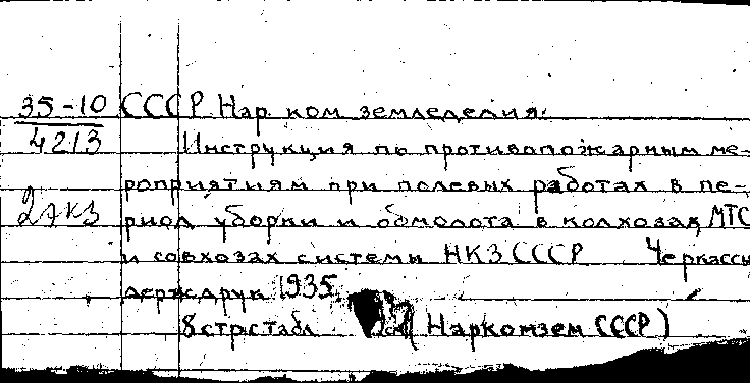 35-10 СССР Нар. ком. земледелия.
4213 Инструкция по противопожарным ме-
роприятиям при полевых работах в пе-
2 экз риод уборки и обмолота в колхозах, МТС
и совхозах системы НКЗ СССР Черкассы
держдрук 1935
8 стр. с табл. (Наркомзем СССР)